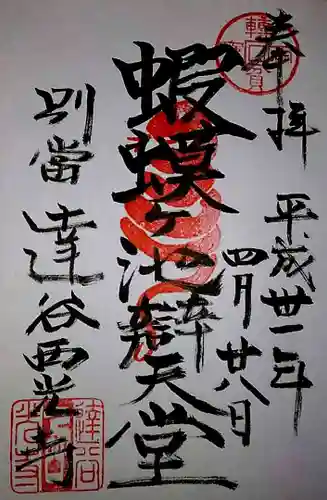 奉拝
平成卅一年
四月廿八日
蝦蟆ヶ池辯天堂
別當
達谷西光寺